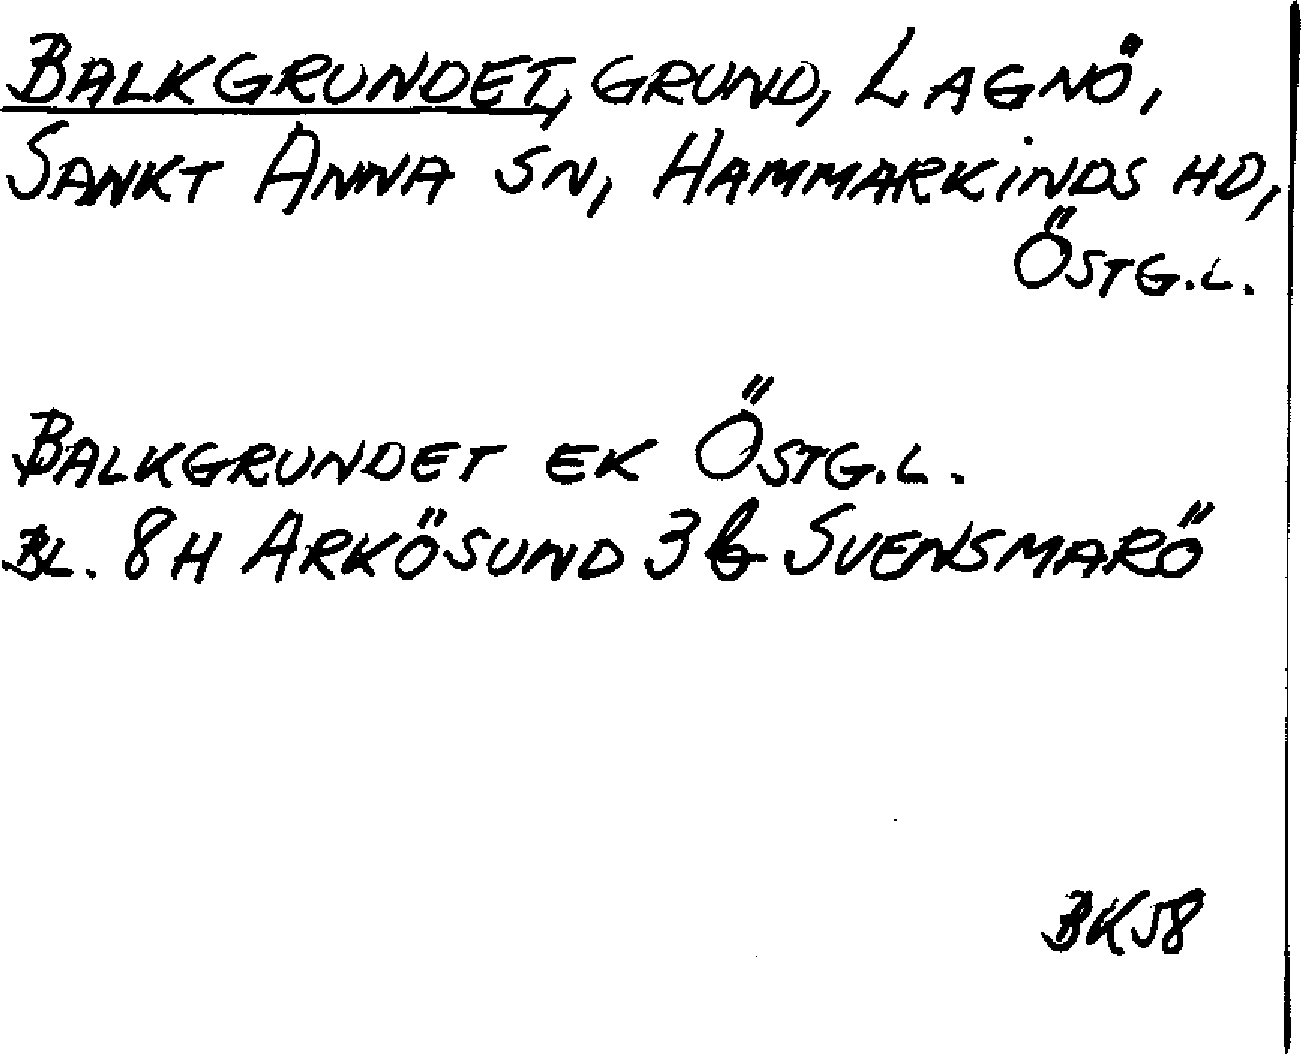 BALKGRUNDET, GRUND, LAGNÖ,
SANKT ANNA SN, HAMMARKINDS HD,
ÖSTG.L.
BALKGRUNDET EK ÖSTG.L.
BL. 8H ARKÖSUND 3b SVENSMARÖ
BK58